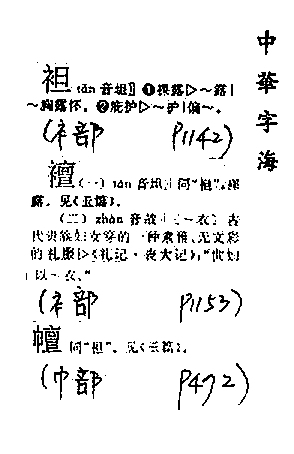 中華字海
袒 tǎn 音坦〗❶裸露▷～露|
～胸露怀。❷庇护▷～护|偏～。
(衤部 P1142)
襢 (一) tǎn 音坦 同“袒”。裸
露。见《玉篇》。
(二) zhàn 音战 ～衣〗古
代贵族妇女穿的一种素雅、无文彩
的礼服▷《礼记·丧大记》:“世妇
以～衣。”
(衤部 P1153)
幝 同“袒”。见《玉篇》。
(巾部 P492)